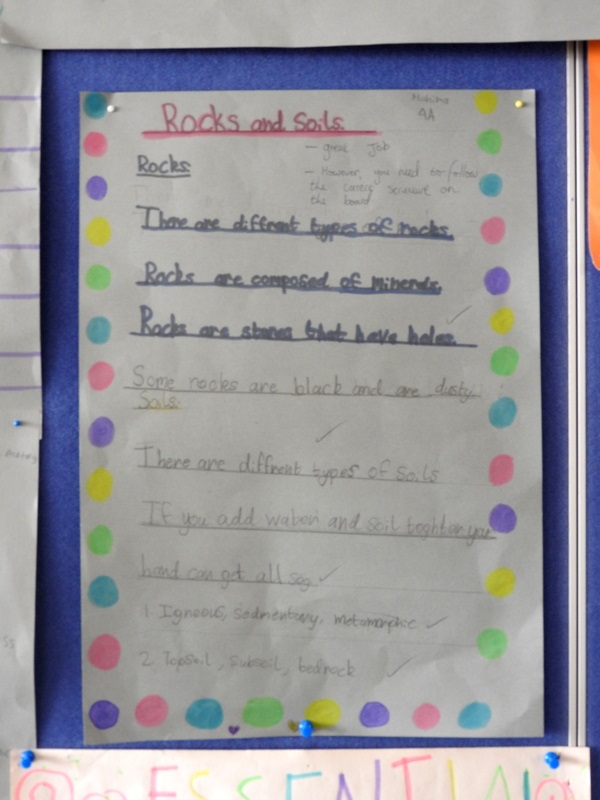 Rocks and Soils.
4A
- great Job
Rocks:
- However, you need to follow
the correct sequence on
the board
There are diffrent types of rocks.
Rocks are composed of minerals.
Rocks are stones that have holes.
Some rocks are black and are dusty.
Soils:
There are diffrent types of Soils
If you add water and soil your
hand can get all
1. Igneous, sedmentary, metamorphic
2. Topsoil, subsoil, bedrock
ESSENTIAL